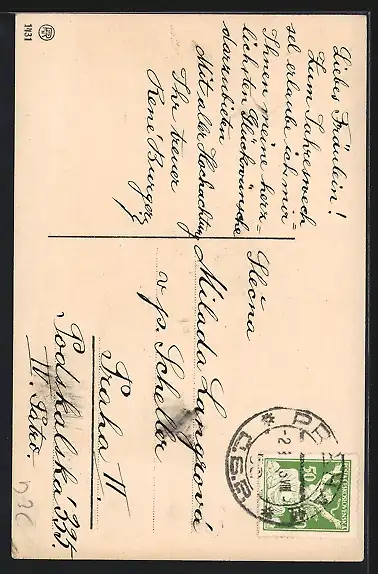 Liebes Fräulein!
Zum Jahreswech=
sel erlaube ich mir
Ihnen meine herz=
lichsten Glückwünsche
darzubieten
Mit aller Hochachtung
Ihr treuer
René Burger
Slečna
Milada Langrová
v p. Scheller
Praha II
Podskalská 335.
IV. Patro.
1131
50